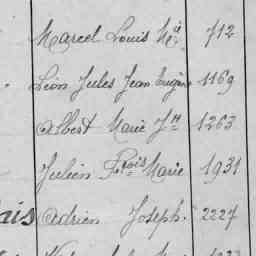 Marcel Louis Mie 712
Léon Jules Jean Eugène 1169
Albert Marie Jh 1263
Julien Frois Marie 1931
ais Adrien Joseph. 2227